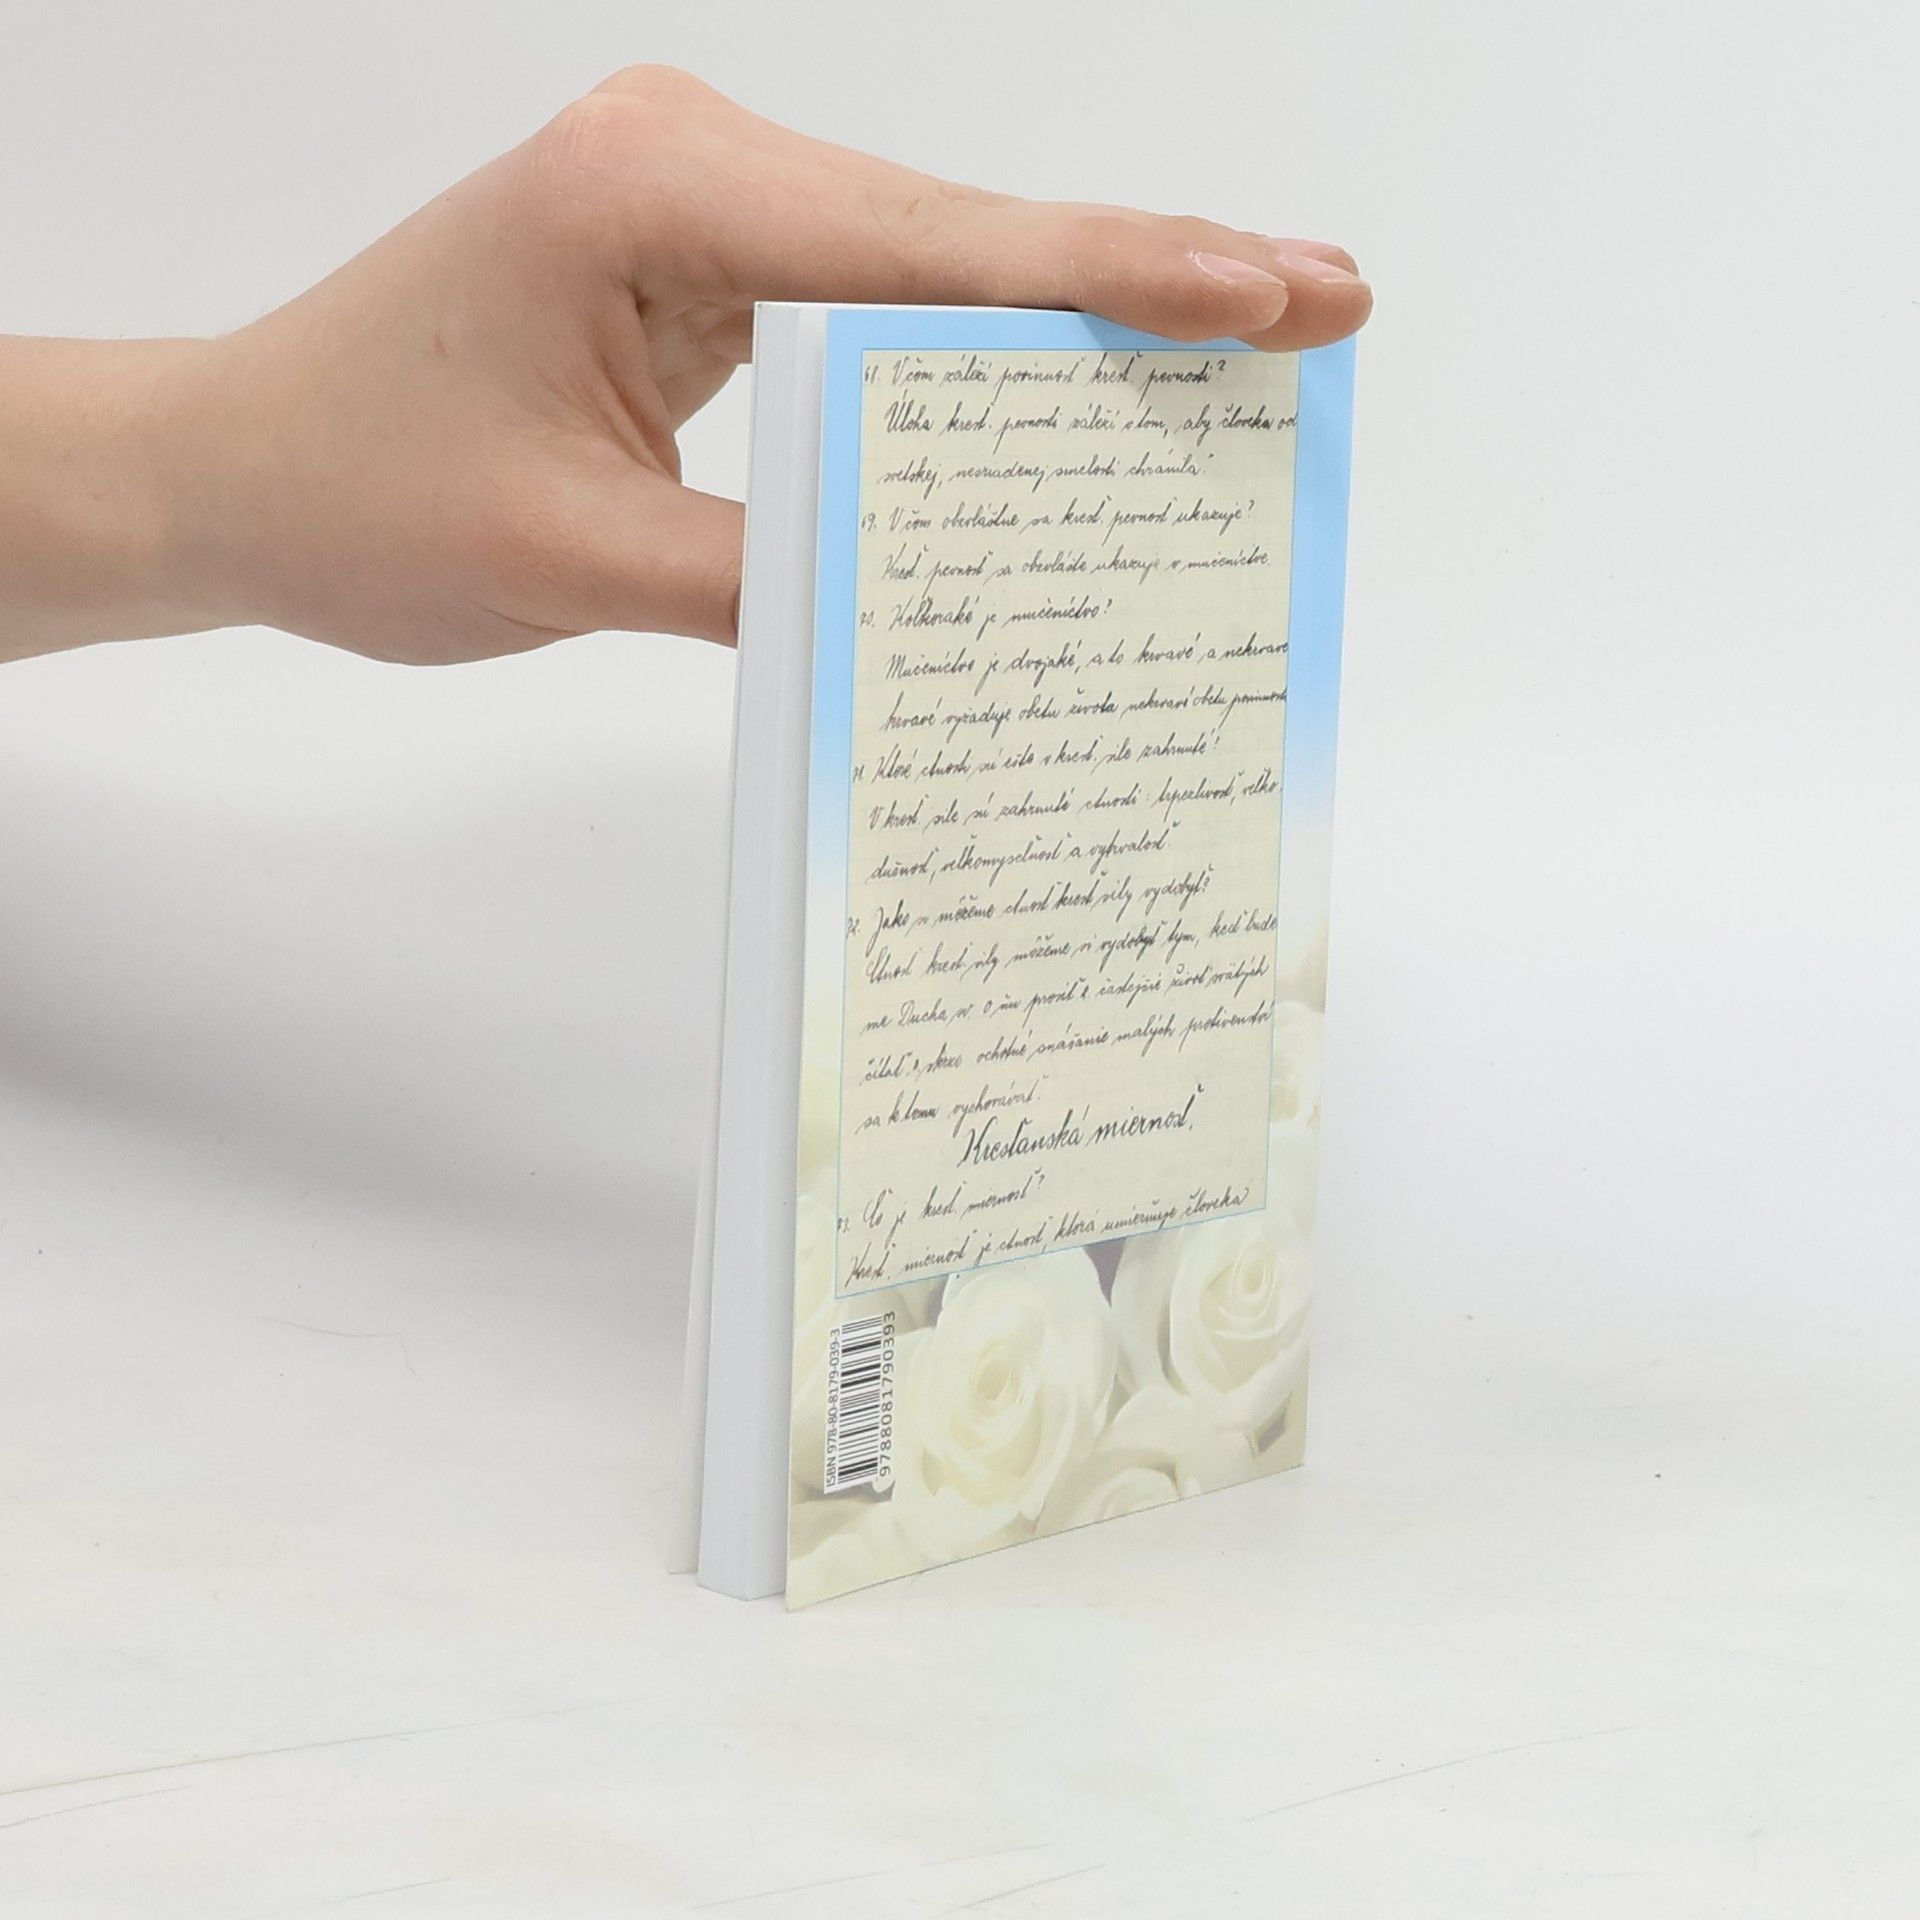 68. V čom záleží povinnosť kresť. pevnosti?
Úloha kresť. pevnosti záleží v tom, aby človeka od
svetskej, nesriadenej smelosti chránila.
69. V čom obzvláštne sa kresť. pevnosť ukazuje?
Kresť. pevnosť sa obzvlášte ukazuje v mučeníctve.
70. Koľkoraké je mučeníctvo?
Mučeníctvo je dvojaké, a to krvavé, a nekrvavé
krvavé vyžaduje obetu života nekrvavé obetu povinnosti
71. Ktoré ctnosti sú ešte v kresť. sile zahrnuté?
V kresť. sile sú zahrnuté ctnosti: trpezlivosť, veľko-
dušnosť, veľkomyseľnosť a vytrvalosť.
72. Jako si môžeme ctnosť kresť sily vydobyť?
Ctnosť kresť. sily môžeme si vydobyť tým, keď bude
me Ducha sv. o ňu prosiť častejšie život svätých
čítať skrze ochotné snášanie malých protivenství
sa k tomu vychovávať.
Kresťanská miernosť.
73. Čo je kresť. miernosť?
Kresť. miernosť je ctnosť, ktorá umierňuje človeka
ISBN 978-80-8179-039-3
9788081790393